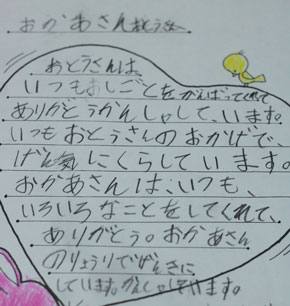 おかあさんおとうさんへ
おとうさんは、
いつもおしごとをがんばってくれて
ありがとうかんしゃして、います。
いつもおとうさんのおかげで、
げん気にくらしています。
おかあさんは、いつも、
いろいろなことをしてくれて、
ありがとう。おかあさん
のりょうりでげんきに
しています。かんしゃしてます。